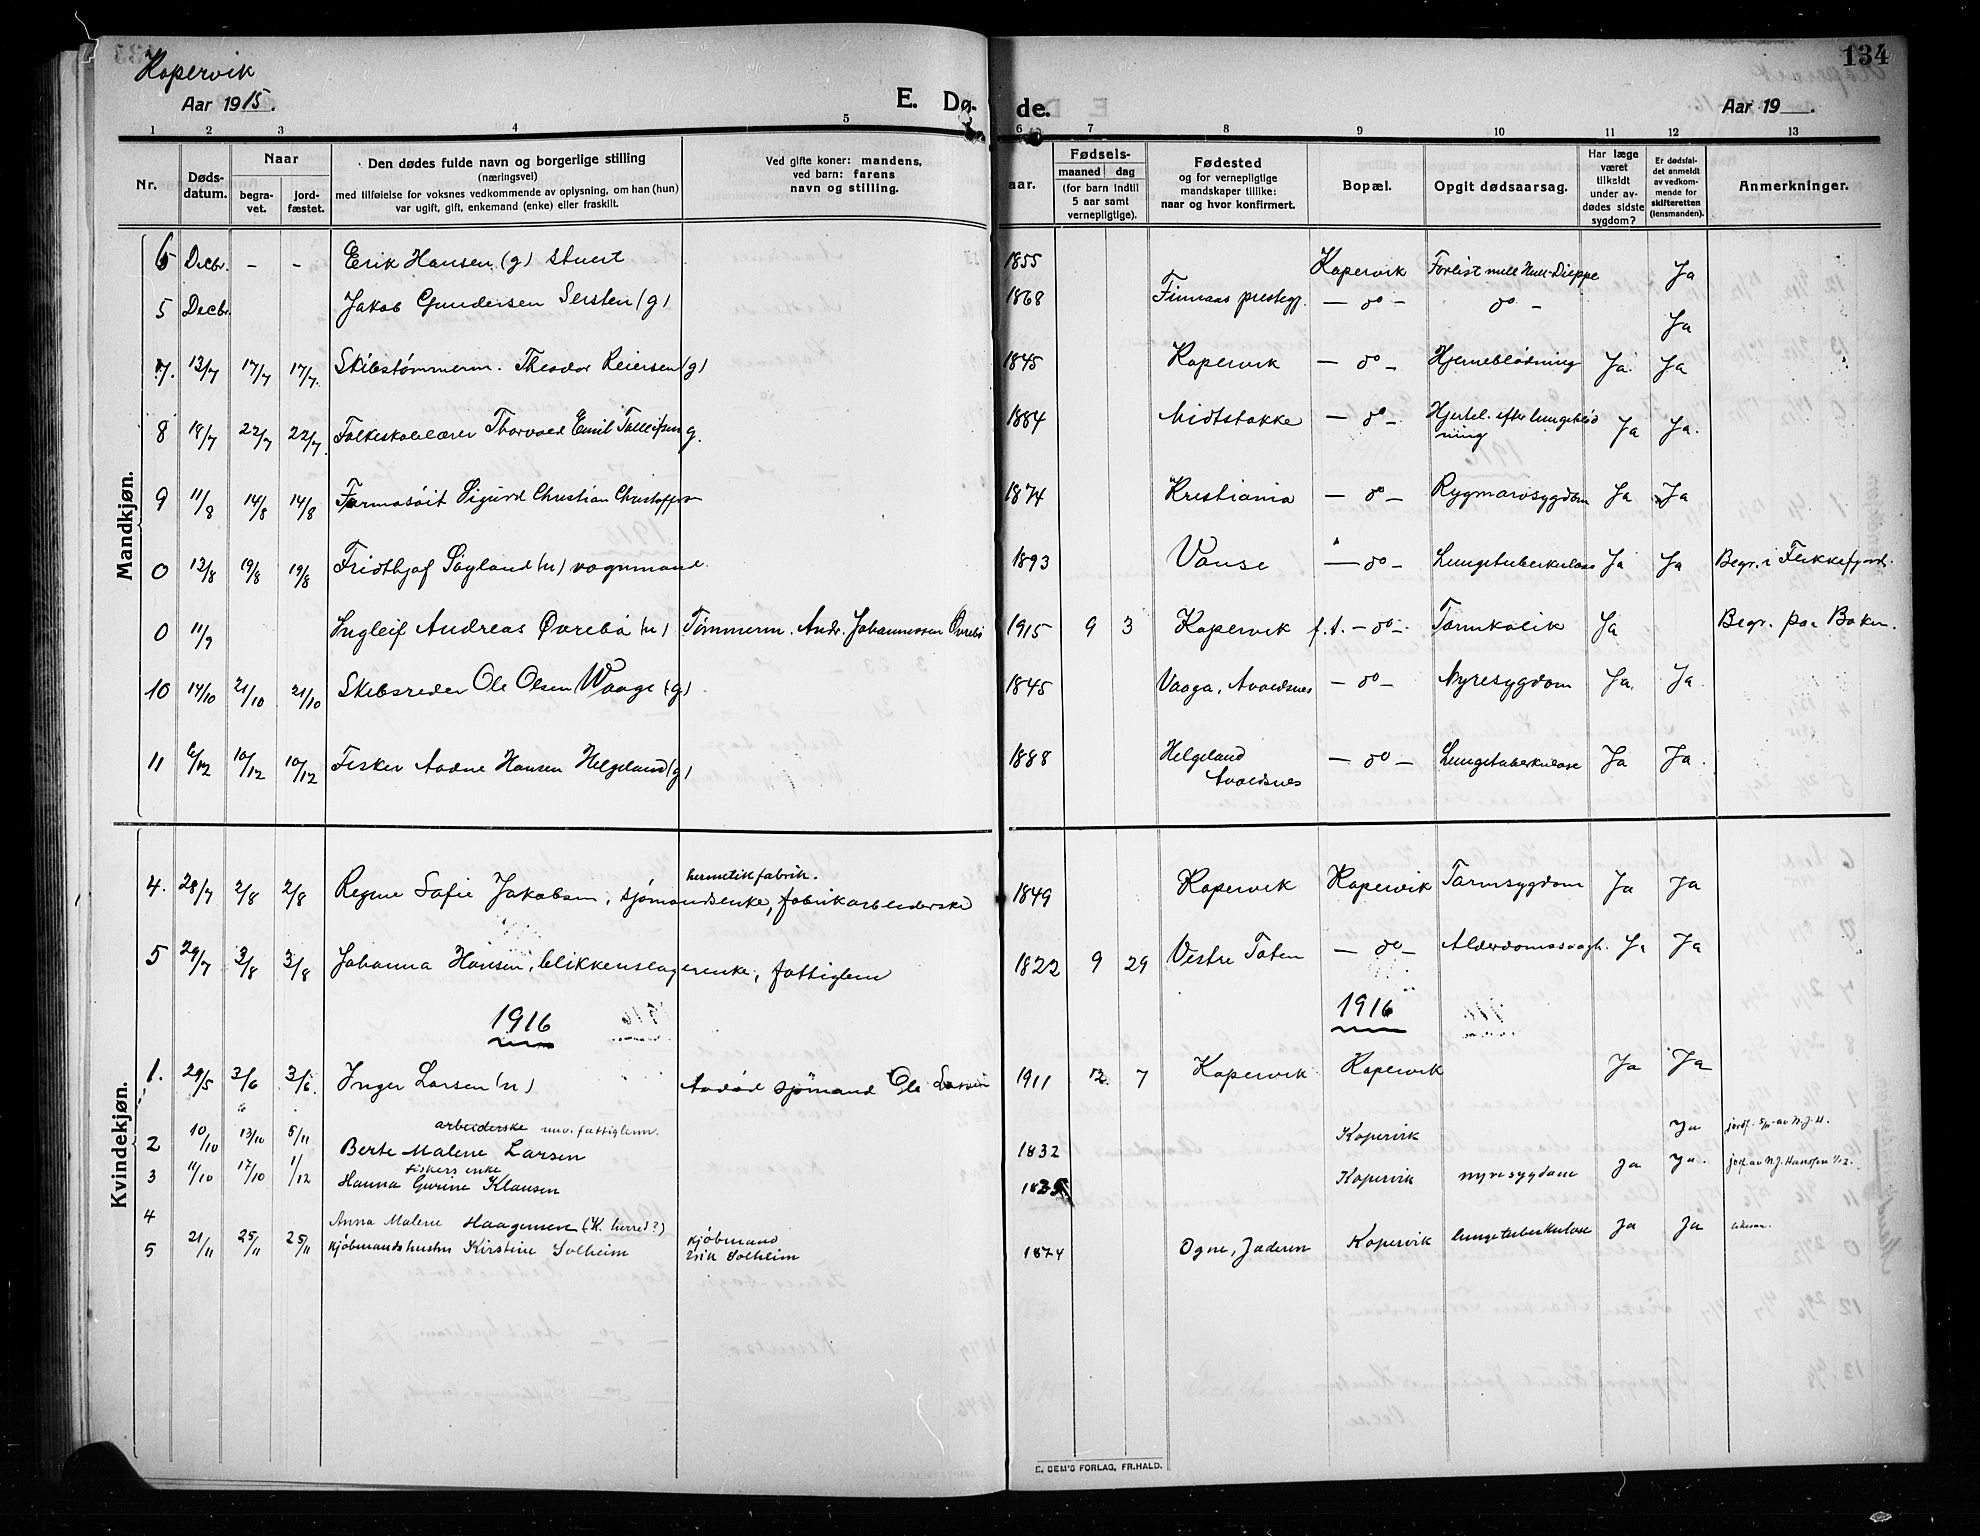 Kopervik
Aar 1915.
E. Dø- de.
134
Aar 19
1 2 3 4 5 6 7 8 9 10 11 12 13
Nr.
Døds-
datum.
Naar
begra-
vet.
jord-
fæstet.
Den dødes fulde navn og borgerlige stilling
(næringsvei)
med tilføielse for voksnes vedkommende av oplysning, om han (hun)
var ugift, gift, enkemand (enke) eller fraskilt.
Ved gifte koner: mandens,
ved barn: farens
navn og stilling.
aar.
Fødsels-
maaned dag
(for barn indtil
5 aar samt
vernepligtige).
Fødested
og for vernepligtige
mandskaper tillike:
naar og hvor konfirmert.
Bopæl.
Opgit dødsaarsag.
Har læge
været
tilkaldt
under av-
dødes sidste
sygdom?
Er dødsfal-
det anmeldt
av vedkom-
mende for
skifteretten
(lensmanden).
Anmerkninger.
Mandkjøn.
6 Decbr. - - Erik Hansen (g) stuert 1855 Kopervik Forlist mell Hull-Dieppe Ja
5 Decbr. Jakob Gundersen Sersten (g) 1868 Finnaas prestegj. — do — do — Ja
7. 13/7 17/7 17/7. Skibstømmerm. Theodor Reiersen (g) 1845 Kopervik — do — Hjerneblødning Ja Ja
8 18/7 22/7 22/7 Folkeskolelærer Thorvald Emil Tollefsen g. 1884 Midtstokke — do — Hjertel. efter lungeblød
ning Ja Ja.
9 11/8 14/8 14/8 Farmasøit Sigurd Christian Christoffersen 1874 Kristiania — do — Rygmarvsygdom Ja Ja
0 13/8 19/8 19/8 Fridthjof Søyland (u) vognmand 1893 Vanse — do — Lungetuberkulose Ja Ja Begr. i Flekkefjord.
0 11/9 Ingleif Andreas Øvrebø (u) Tømmerm. Andr. Johannessen Øvrebø 1915 9 3 Kopervik f.t. — do — Tarmkolik Ja Begr. paa Bokn.
10 14/10 21/10 21/10 Skibsreder Ole Olsen Waage (g) 1845 Vaaga, Avaldsnes — do — Nyresygdom Ja. Ja.
11 6/12 10/12 10/12 Fisker Aadne Hansen Helgeland (g) 1888 Helgeland
Avaldsnes — do — Lungetuberkulose Ja Ja.
Kvindekjøn.
hermetikfabrik.
4. 28/7 2/8 2/8 Regine Sofie Jakobsen, sjømandsenke, fabrikarbeiderske 1849 Kopervik Kopervik Tarmsygdom Ja Ja
5 29/7 3/8 3/8 Johanna Hansen, blikkenslagerenke, fattiglem 1822 9 29 Vestre Toten — do — Alderdomssvagh. Ja Ja
1916 1916
1. 29/5 3/6 3/6. Inger Larsen (u) Avdød sjømand Ole Larsen 1911 12 7 Kopervik Kopervik Ja Ja
arbeiderske fattiglem.
2 10/10 13/10 5/11 Berte Malene Larsen 1832 Kopervik Ja jordf. 5/11 av N. J. H.
fiskers enke
3 11/10 17/10 1/12 Hanna Gurine Klausen 1835 Kopervik nyresygdom Ja Ja. jorf. av N. J. Hanssen 1/12.
4 Anna Malene Haagensen (K. herred?)
5 21/11 25/11 25/11 kjøbmandshustru Kirstine Solheim kjøbmand
Erik Solheim 1874 Ogne, Jæderen Kopervik lungetuberkulose Ja Ja
E. SEM'S FORLAG, FR.HALD.